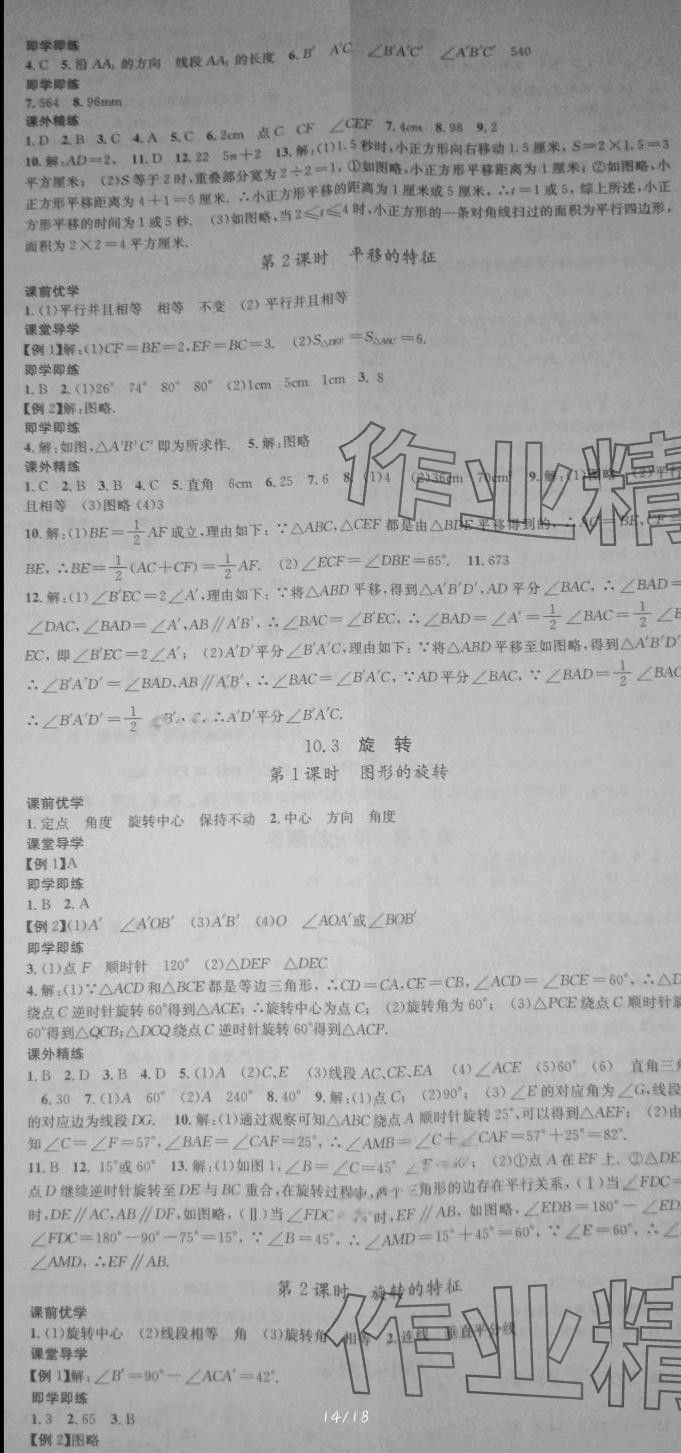 即学即练
4. C  5. 沿 AA₁ 的方向  线段 AA₁ 的长度  6. B′  A′C  ∠B′A′C′  ∠A′B′C′  540
即学即练
7. 564  8. 96mm
课外精练
1. D  2. B  3. C  4. A  5. C  6. 2cm  点 C  CF  ∠CEF  7. 4cm  8. 98  9. 2
10. 解:AD=2,  11. D  12. 22  5n+2  13. 解:(1)1.5 秒时,小正方形向右移动 1.5 厘米, S=2×1.5=3
平方厘米; (2)S 等于 2 时,重叠部分宽为 2÷2=1, ①如图略,小正方形平移距离为 1 厘米; ②如图略,小
正方形平移距离为 4+1=5 厘米. ∴小正方形平移的距离为 1 厘米或 5 厘米, ∴t=1 或 5, 综上所述,小正
方形平移的时间为 1 或 5 秒. (3)如图略,当 2≤t≤4 时,小正方形的一条对角线扫过的面积为平行四边形,
面积为 2×2=4 平方厘米.
第 2 课时  平移的特征
课前优学
1. (1)平行并且相等  相等  不变  (2) 平行并且相等
课堂导学
【例 1】解:(1)CF=BE=2,EF=BC=3.  (2)S△DEF=S△ABC=6.
即学即练
1. B  2. (1)26°  74°  80°  80°  (2)1cm  5cm  1cm  3. 8
【例 2】解:图略.
即学即练
4. 解:如图,△A′B′C′即为所求作.  5. 解:图略
课外精练
1. C  2. B  3. B  4. C  5. 直角  6cm  6. 25  7. 6  8. (1)4  (2)36cm  70cm²  9. 解:(1)图略  (2)平行
且相等  (3)图略 (4)3
10. 解:(1)BE=1/2 AF 成立,理由如下: ∵△ABC,△CEF 都是由△BDE 平移得到的, ∴AC=BE,CF=
BE, ∴BE=1/2(AC+CF)=1/2 AF.  (2)∠ECF=∠DBE=65°.  11. 673
12. 解:(1)∠B′EC=2∠A′,理由如下: ∵将△ABD 平移,得到△A′B′D′,AD 平分∠BAC, ∴∠BAD=
∠DAC,∠BAD=∠A′,AB∥A′B′, ∴∠BAC=∠B′EC, ∴∠BAD=∠A′=1/2∠BAC=1/2∠B′
EC, 即∠B′EC=2∠A′; (2)A′D′平分∠B′A′C,理由如下: ∵将△ABD 平移至如图略,得到△A′B′D′
∴∠B′A′D′=∠BAD,AB∥A′B′, ∴∠BAC=∠B′A′C, ∵AD 平分∠BAC, ∵∠BAD=1/2∠BAC
∴∠B′A′D′=1/2∠B′A′C, ∴A′D′平分∠B′A′C.
10.3  旋  转
第 1 课时  图形的旋转
课前优学
1. 定点  角度  旋转中心  保持不动  2. 中心  方向  角度
课堂导学
【例 1】A
即学即练
1. B  2. A
【例 2】(1)A′  ∠A′OB′  (3)A′B′  (4)O  ∠AOA′或∠BOB′
即学即练
3. (1)点 F  顺时针  120°  (2)△DEF  △DEC
4. 解:(1)∵△ACD 和△BCE 都是等边三角形, ∴CD=CA,CE=CB,∠ACD=∠BCE=60°, ∴△D
绕点 C 逆时针旋转 60°得到△ACE; ∴旋转中心为点 C; (2)旋转角为 60°; (3)△PCE 绕点 C 顺时针旋
60°得到△QCB;△DCQ 绕点 C 逆时针旋转 60°得到△ACP.
课外精练
1. B  2. D  3. B  4. D  5. (1)A  (2)C、E  (3)线段 AC、CE、EA  (4)∠ACE  (5)60°  (6)  直角三角
6. 30  7. (1)A  60°  (2)A  240°  8. 40°  9. 解:(1)点 C; (2)90°; (3)∠E 的对应角为∠G,线段
的对应边为线段 DG.  10. 解:(1)通过观察可知△ABC 绕点 A 顺时针旋转 25°,可以得到△AEF; (2)由
知∠C=∠F=57°,∠BAE=∠CAF=25°, ∴∠AMB=∠C+∠CAF=57°+25°=82°.
11. B  12. 15°或 60°  13. 解:(1)如图 1,∠B=∠C=45°  =60°; (2)①点 A 在 EF 上. ②△DE
点 D 继续逆时针旋转至 DE 与 BC 重合,在旋转过程中,两个三角形的边存在平行关系, (Ⅰ)当∠FDC=
时,DE∥AC,AB∥DF,如图略, (Ⅱ)当∠FDC= 时,EF∥AB, 如图略,∠EDB=180°−∠ED
∠FDC=180°−90°−75°=15°, ∵∠B=45°, ∴∠AMD=15°+45°=60°, ∵∠E=60°, ∴∠
∠AMD, ∴EF∥AB.
第 2 课时  旋转的特征
课前优学
1. (1)旋转中心  (2)线段相等  角  (3)旋转角  相等  2. 连线  垂直平分线
课堂导学
【例 1】解:∠B′=90°−∠ACA′=42°.
即学即练
1. 3  2. 65  3. B
【例 2】图略
14/18
作业精
作业精